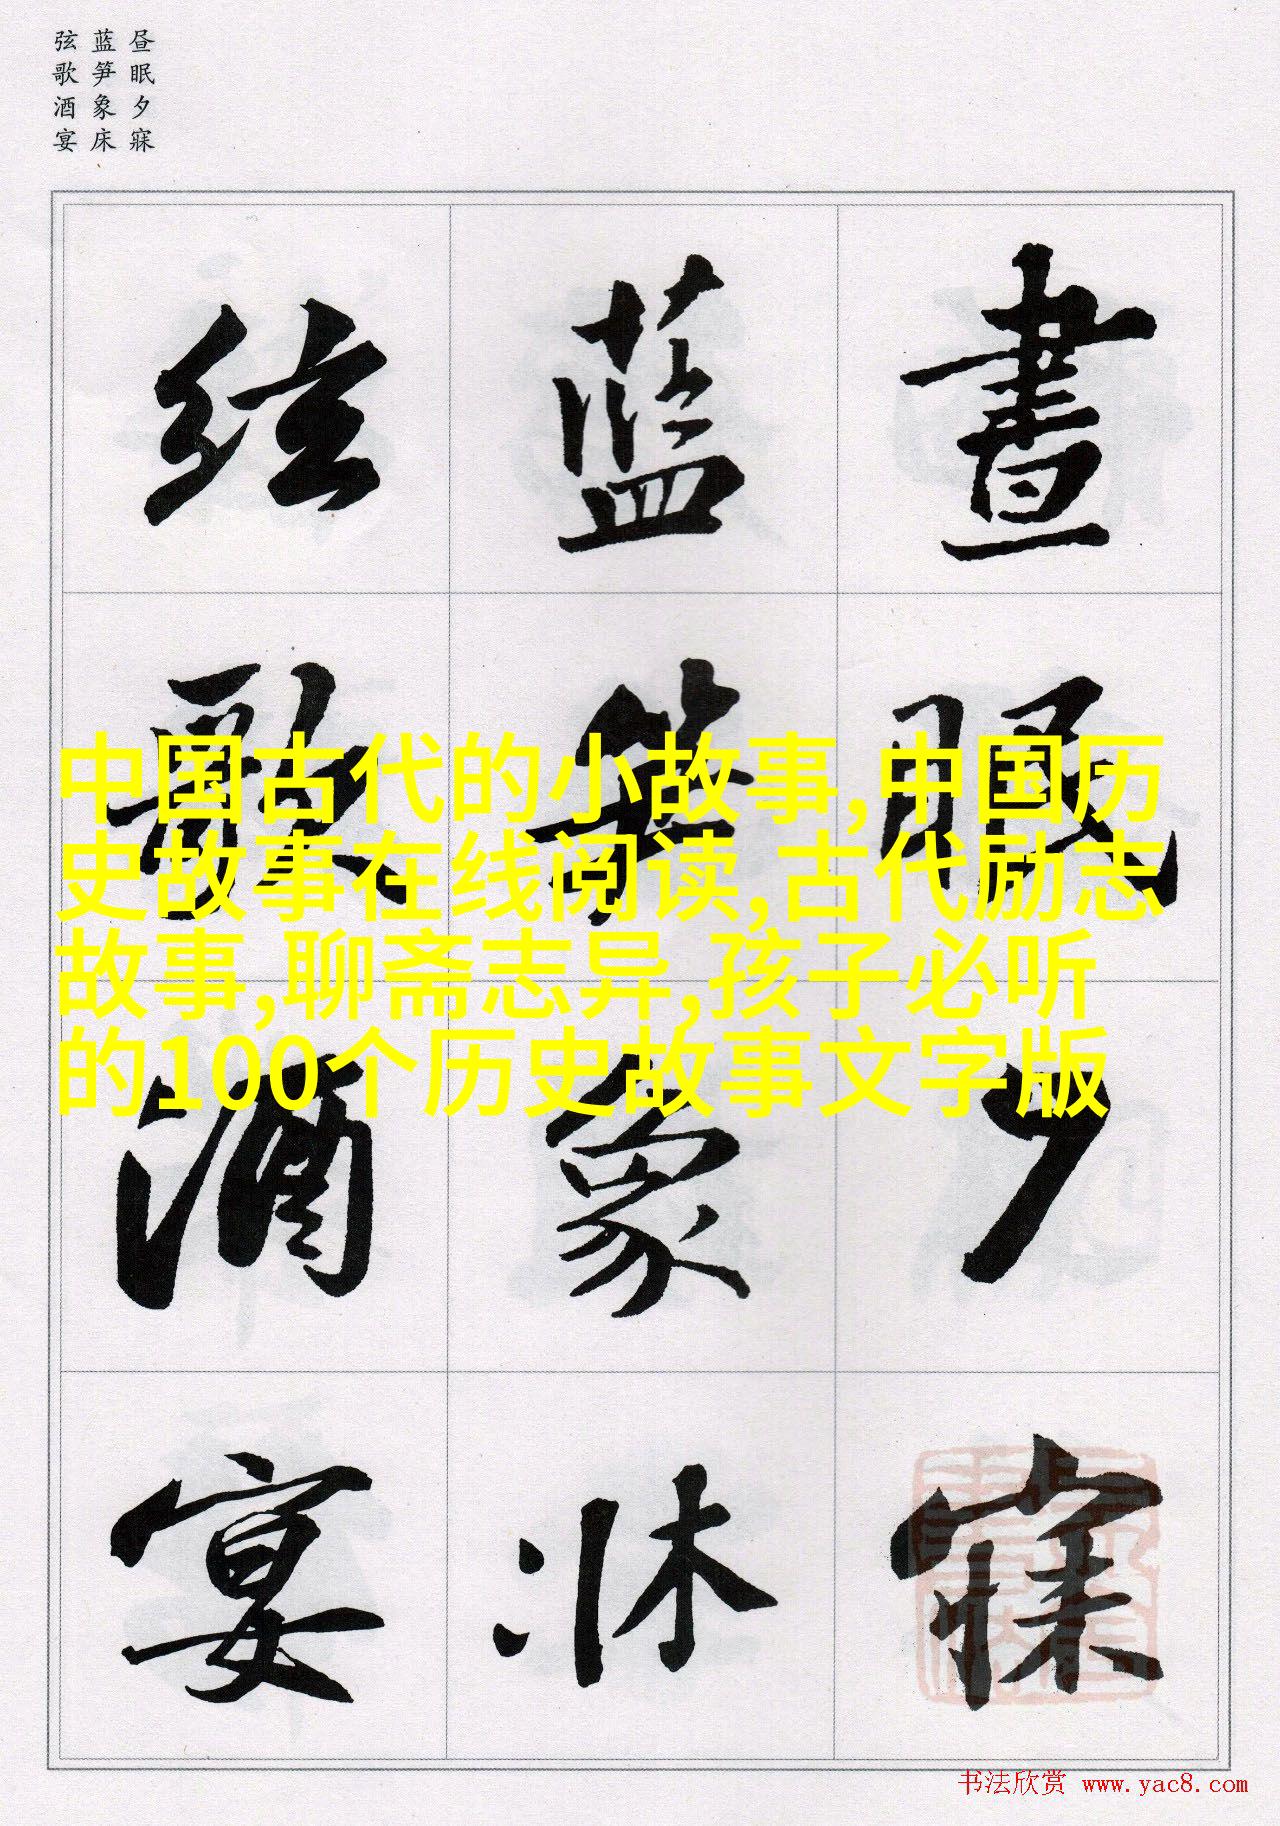 昼眠夕寐
蓝笋象床
弦歌酒宴
晝眠夕寐
藍笋象牀
絃歌酒宴
中国古代的小故事,中国历
史故事在线阅读,古代励志
故事,聊斋志异,孩子必听
的100个历史故事文字版
书法欣赏 www.yac8.com